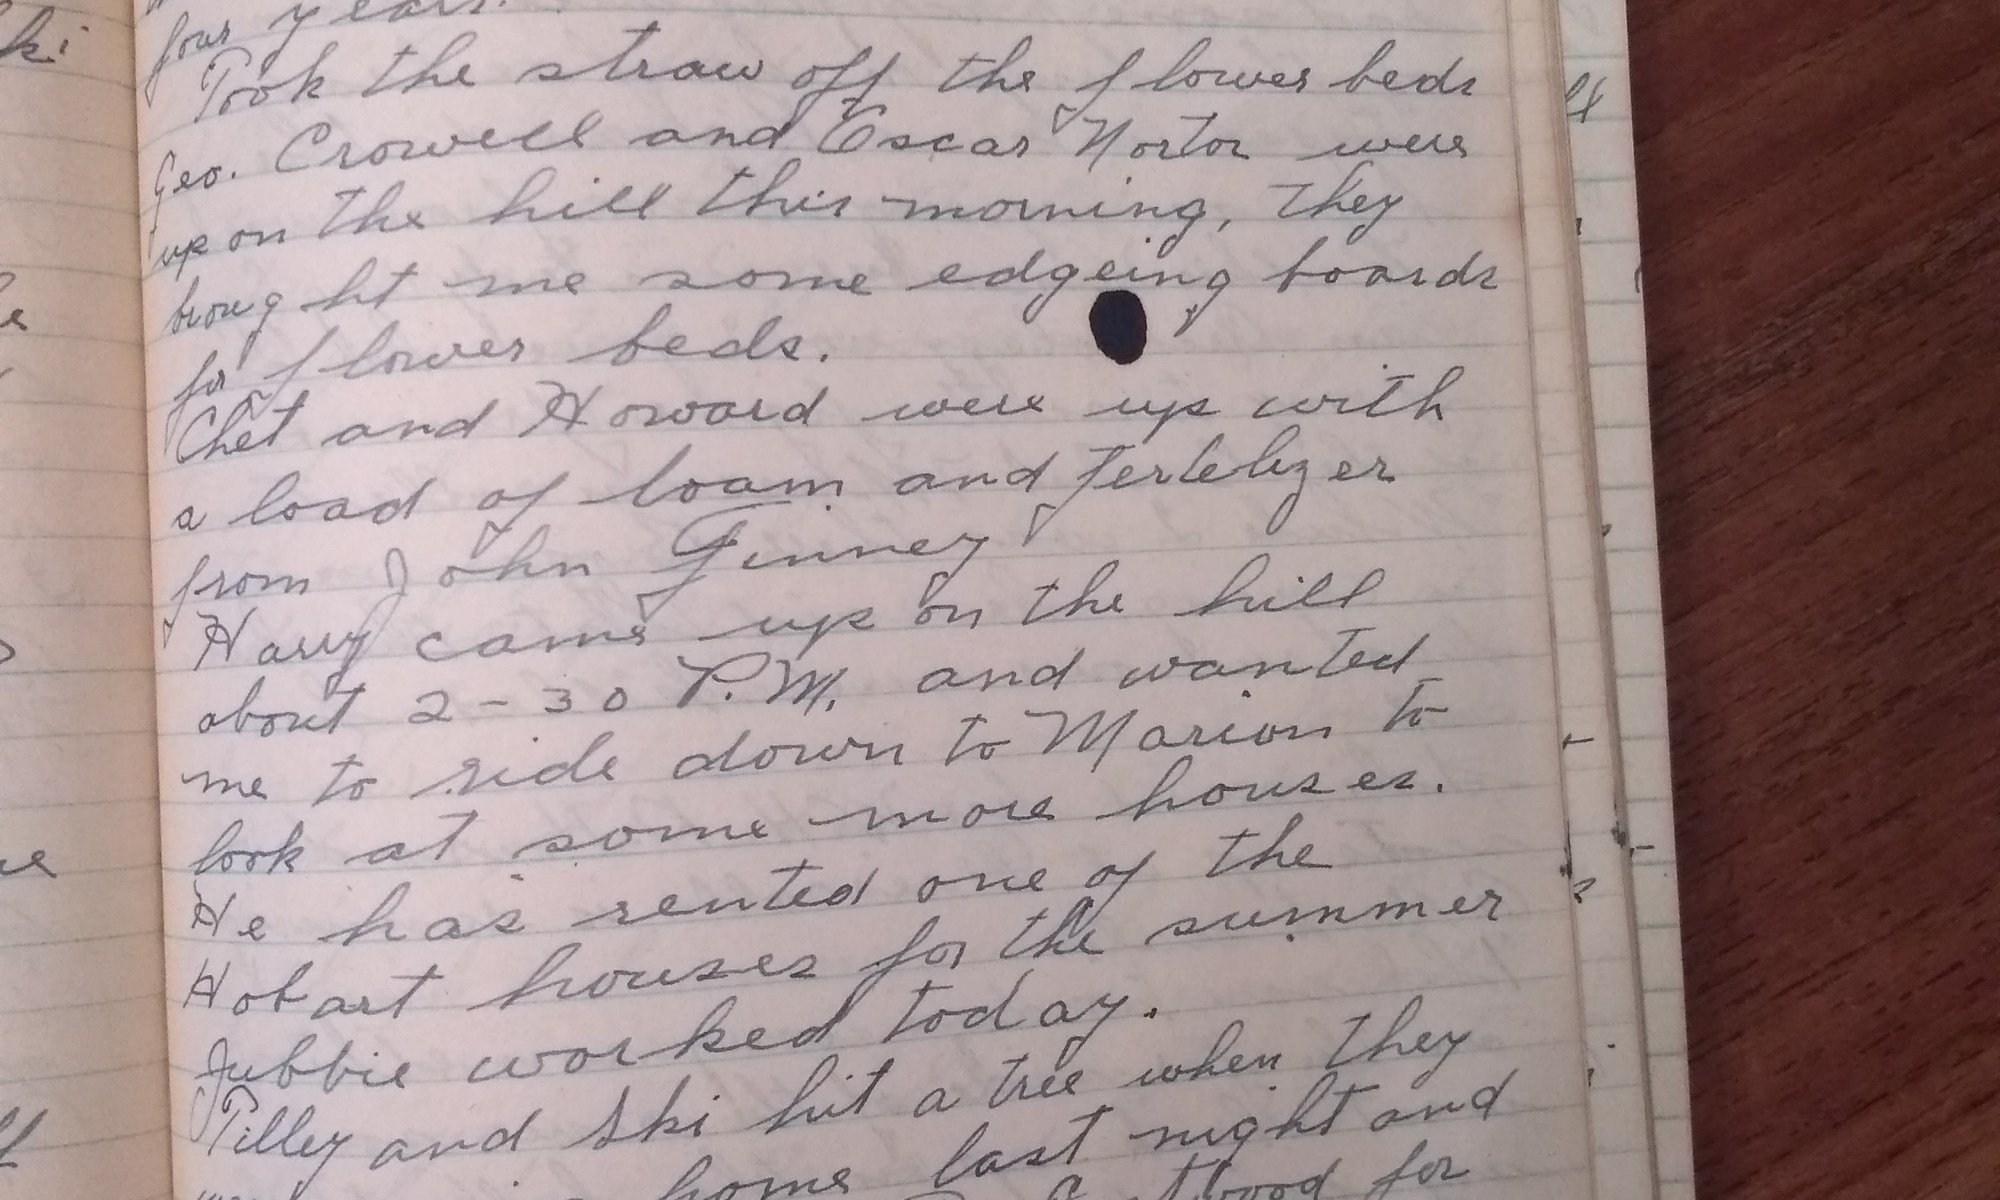 four years.
Took the straw off the flower beds
Geo. Crowell and Oscar Norton were
up on the hill this morning, They
brought me some edgeing boards
for flower beds.
Chet and Howard were up with
a load of loam and fertelizer
from John Finney
Harry came up on the hill
about 2-30 P.M. and wanted
me to ride down to Marion to
look at some more houses.
He has rented one of the
Hobart houses for the summer
Jubbie worked today.
Tilley and Ski hit a tree when they
home last night and
for